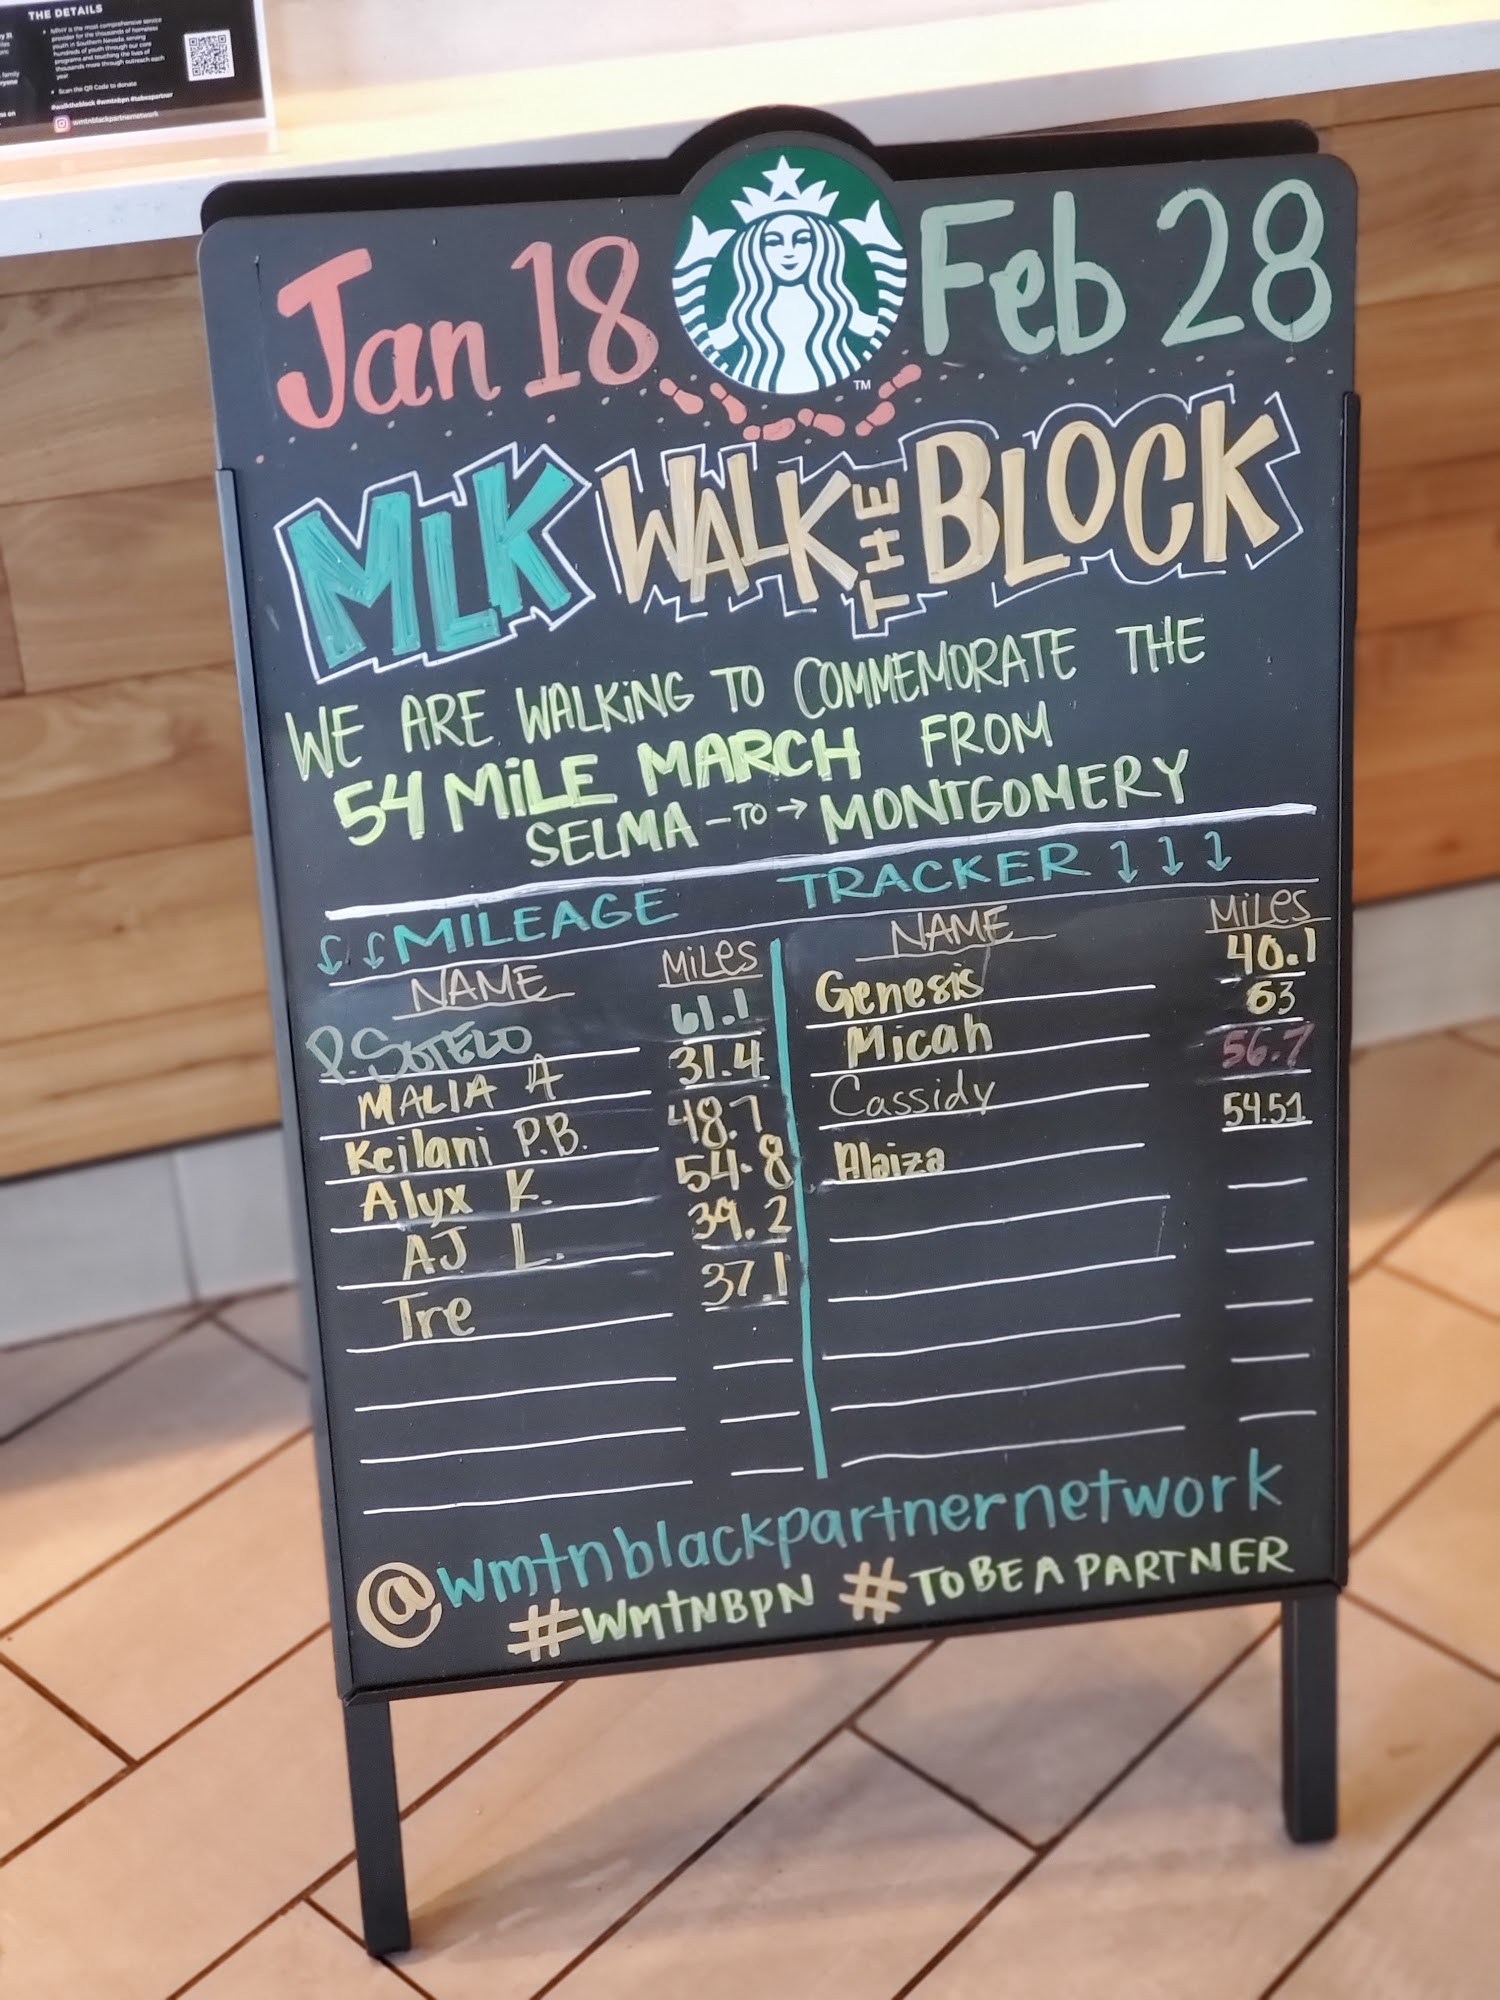 THE DETAILS
MNY is the most comprehensive service
provider for the thousands of homeless
youth in Southern Nevada, serving
hundreds of youth through our care
programs and touching the lives of
thousands more through outreach each
year
Scan the QR Code to donate
#walktheblock #wmtnbpn #tobeapartner
wmtnblackpartnernetwork
family
on
Jan 18 Feb 28
TM
MLK WALK THE BLOCK
WE ARE WALKING TO COMMEMORATE THE
54 MILE MARCH FROM
SELMA - TO → MONTGOMERY
MILEAGE TRACKER
NAME MILES NAME MILES
P. SOTELO 61.1 Genesis 40.1
MALIA A 31.4 Micah 63
Keilani P.B. 48.7 Cassidy 56.7
Alyx K. 54.8 Alaiza 54.51
AJ L. 39.2
Tre 37.1
@wmtnblackpartnernetwork
#WMTNBPN #TOBEAPARTNER